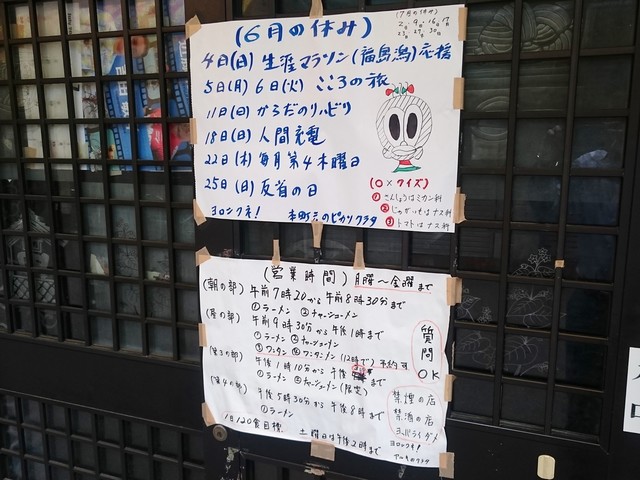 (6月の休み)
(7月の休み)
4日(日) 生涯マラソン(福島潟)応援
5日(月) 6日(火) こころの旅
11日(日) からだのリハビリ
18日(日) 人間充電
22日(木) 毎月第4木曜日
25日(日) 反省の日
ヨロシクネ!
(〇×クイズ)
① さんしょうはミカン科
② じゃがいもはナス科
③ トマトはナス科
(営業時間) 月曜〜金曜まで
(朝の部) 午前7時20から午前8時30分まで
①ラーメン ②チャーシューメン
午前9時30分から午後1時まで
①ラーメン ②チャーシューメン
③ワンタン ④ワンタンメン (12時まで) 予約可
(第3の部) 午後1時10分から午後
①ラーメン ②チャーシューメン(限定)
(第4の部) 午後5時30分から午後8時まで
①ラーメン
1日120食目標
土曜日は午後2時まで
質問OK
禁煙の店
禁酒の店
ヨッパライダメ
ヨロシクネ!